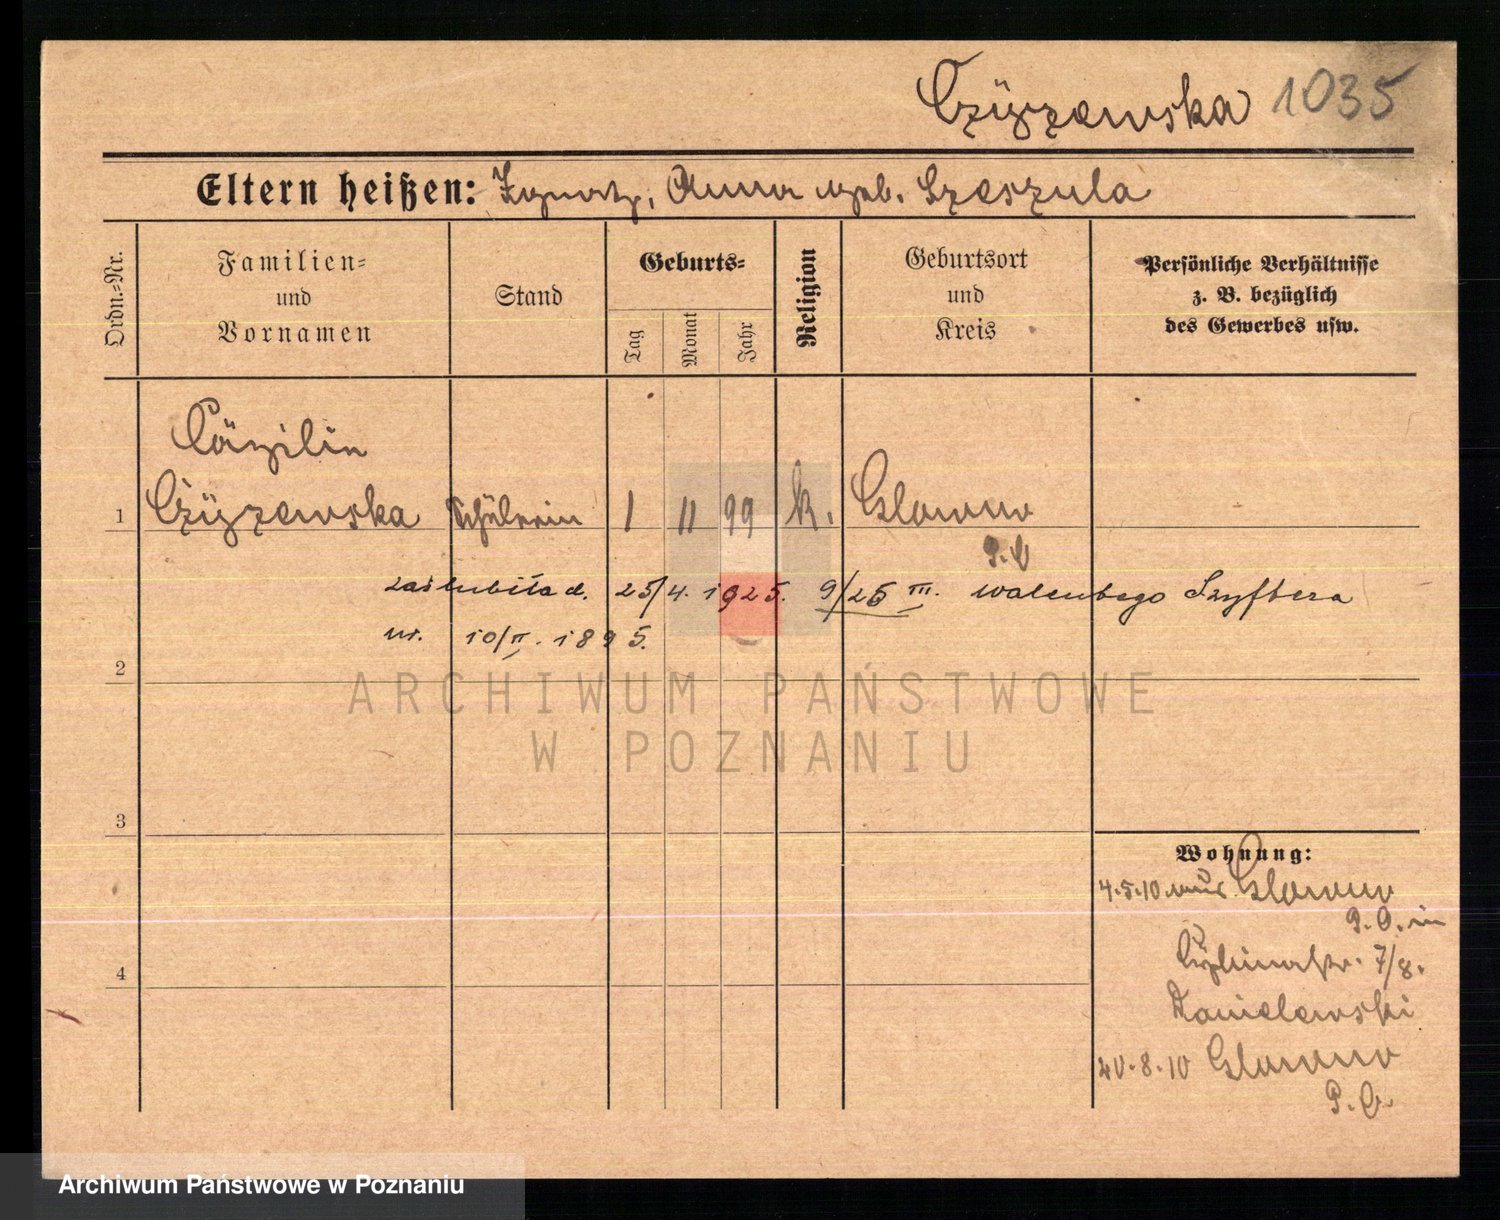 Czÿzewska 1035
Eltern heißen: Ignatz, Anna geb. Szeszula
Ordn.-Nr.
Familien-
und
Vornamen
Stand
Geburts-
Tag
Monat
Jahr
Religion
Geburtsort
und
Kreis
Persönliche Verhältnisse
z. B. bezüglich
des Gewerbes usw.
Cäzilia
1 Czÿzewska Schülerin 1 11 99 k. Glowno
P. O
zaślubiła d. 25/4. 1925. 9/25 III. Walentego Szyftera
ur. 10/II. 1895.
2
ARCHIWUM PAŃSTWOWE
W POZNANIU
3
Wohnung:
4.5.10 aus Glowno
P. O. in
Cybinastr. 7/8.
4
Danielewski
20.8.10 Glowno
P. O.
Archiwum Państwowe w Poznaniu